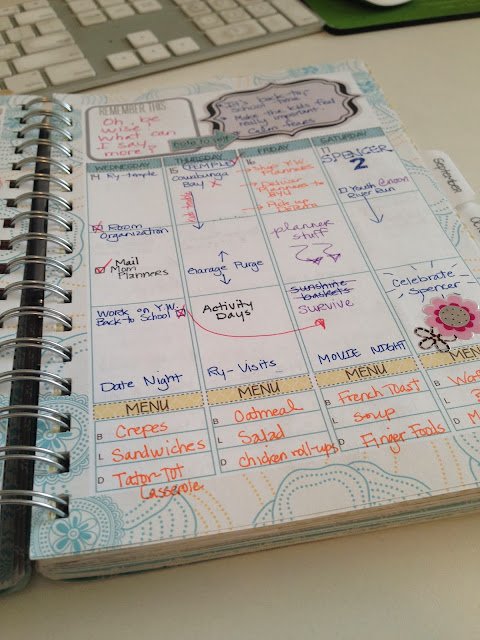 REMEMBER THIS
Oh, be
wise
what can
I say
more?
It's back-to-
School time
Make the kids feel
really important
Calm fears
note to self
WEDNESDAY
14 Ry-Temple
Room
Organization
Mail
Mom
Planners
Work on Y.W.
Back to School
Date Night
MENU
B Crepes
L Sandwiches
D Tator-Tot
Casserole
THURSDAY
15 TEMPLE
Cowabunga
Bay X
Garage Purge
Activity
Days
Ry-Visits
MENU
B Oatmeal
L Salad
D Chicken roll-ups
FRIDAY
16
Y.W.
Planners
Deliver
Planners to
Pick up
planner
stuff
Sunshine
baskets
SURVIVE
MOVIE NIGHT
MENU
B French Toast
L Soup
D Finger Foods
SATURDAY
17
SPENCER
2
Youth @noon
River Run
Celebrate
Spencer
MENU
September